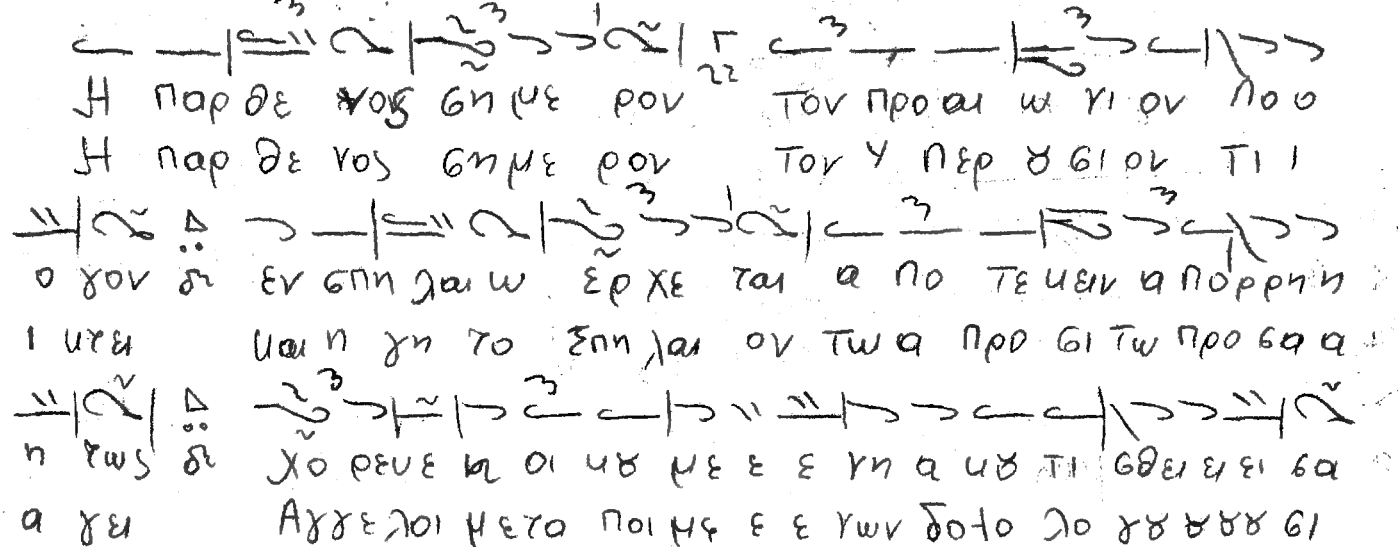 Η παρ θε νος ση με ρον τον προ αι ω νι ον λο ο
Η παρ θε νος ση με ρον τον υ περ ȣ σι ον τι ι
ο γον δι εν σπη λαι ω ερ χε ται α πο τε κειν α πορ ρη η
ι κτει και η γη το σπη λαι ον τω α προ σι τω προ σα α
η τως δι χο ρευε η οι κȣ με ε ε νη α κȣ τι σθει ει ει σα
α γει Αγγε λοι με τα ποι με ε ε νων δο ξο λο γȣ ȣ ȣ ȣ σι